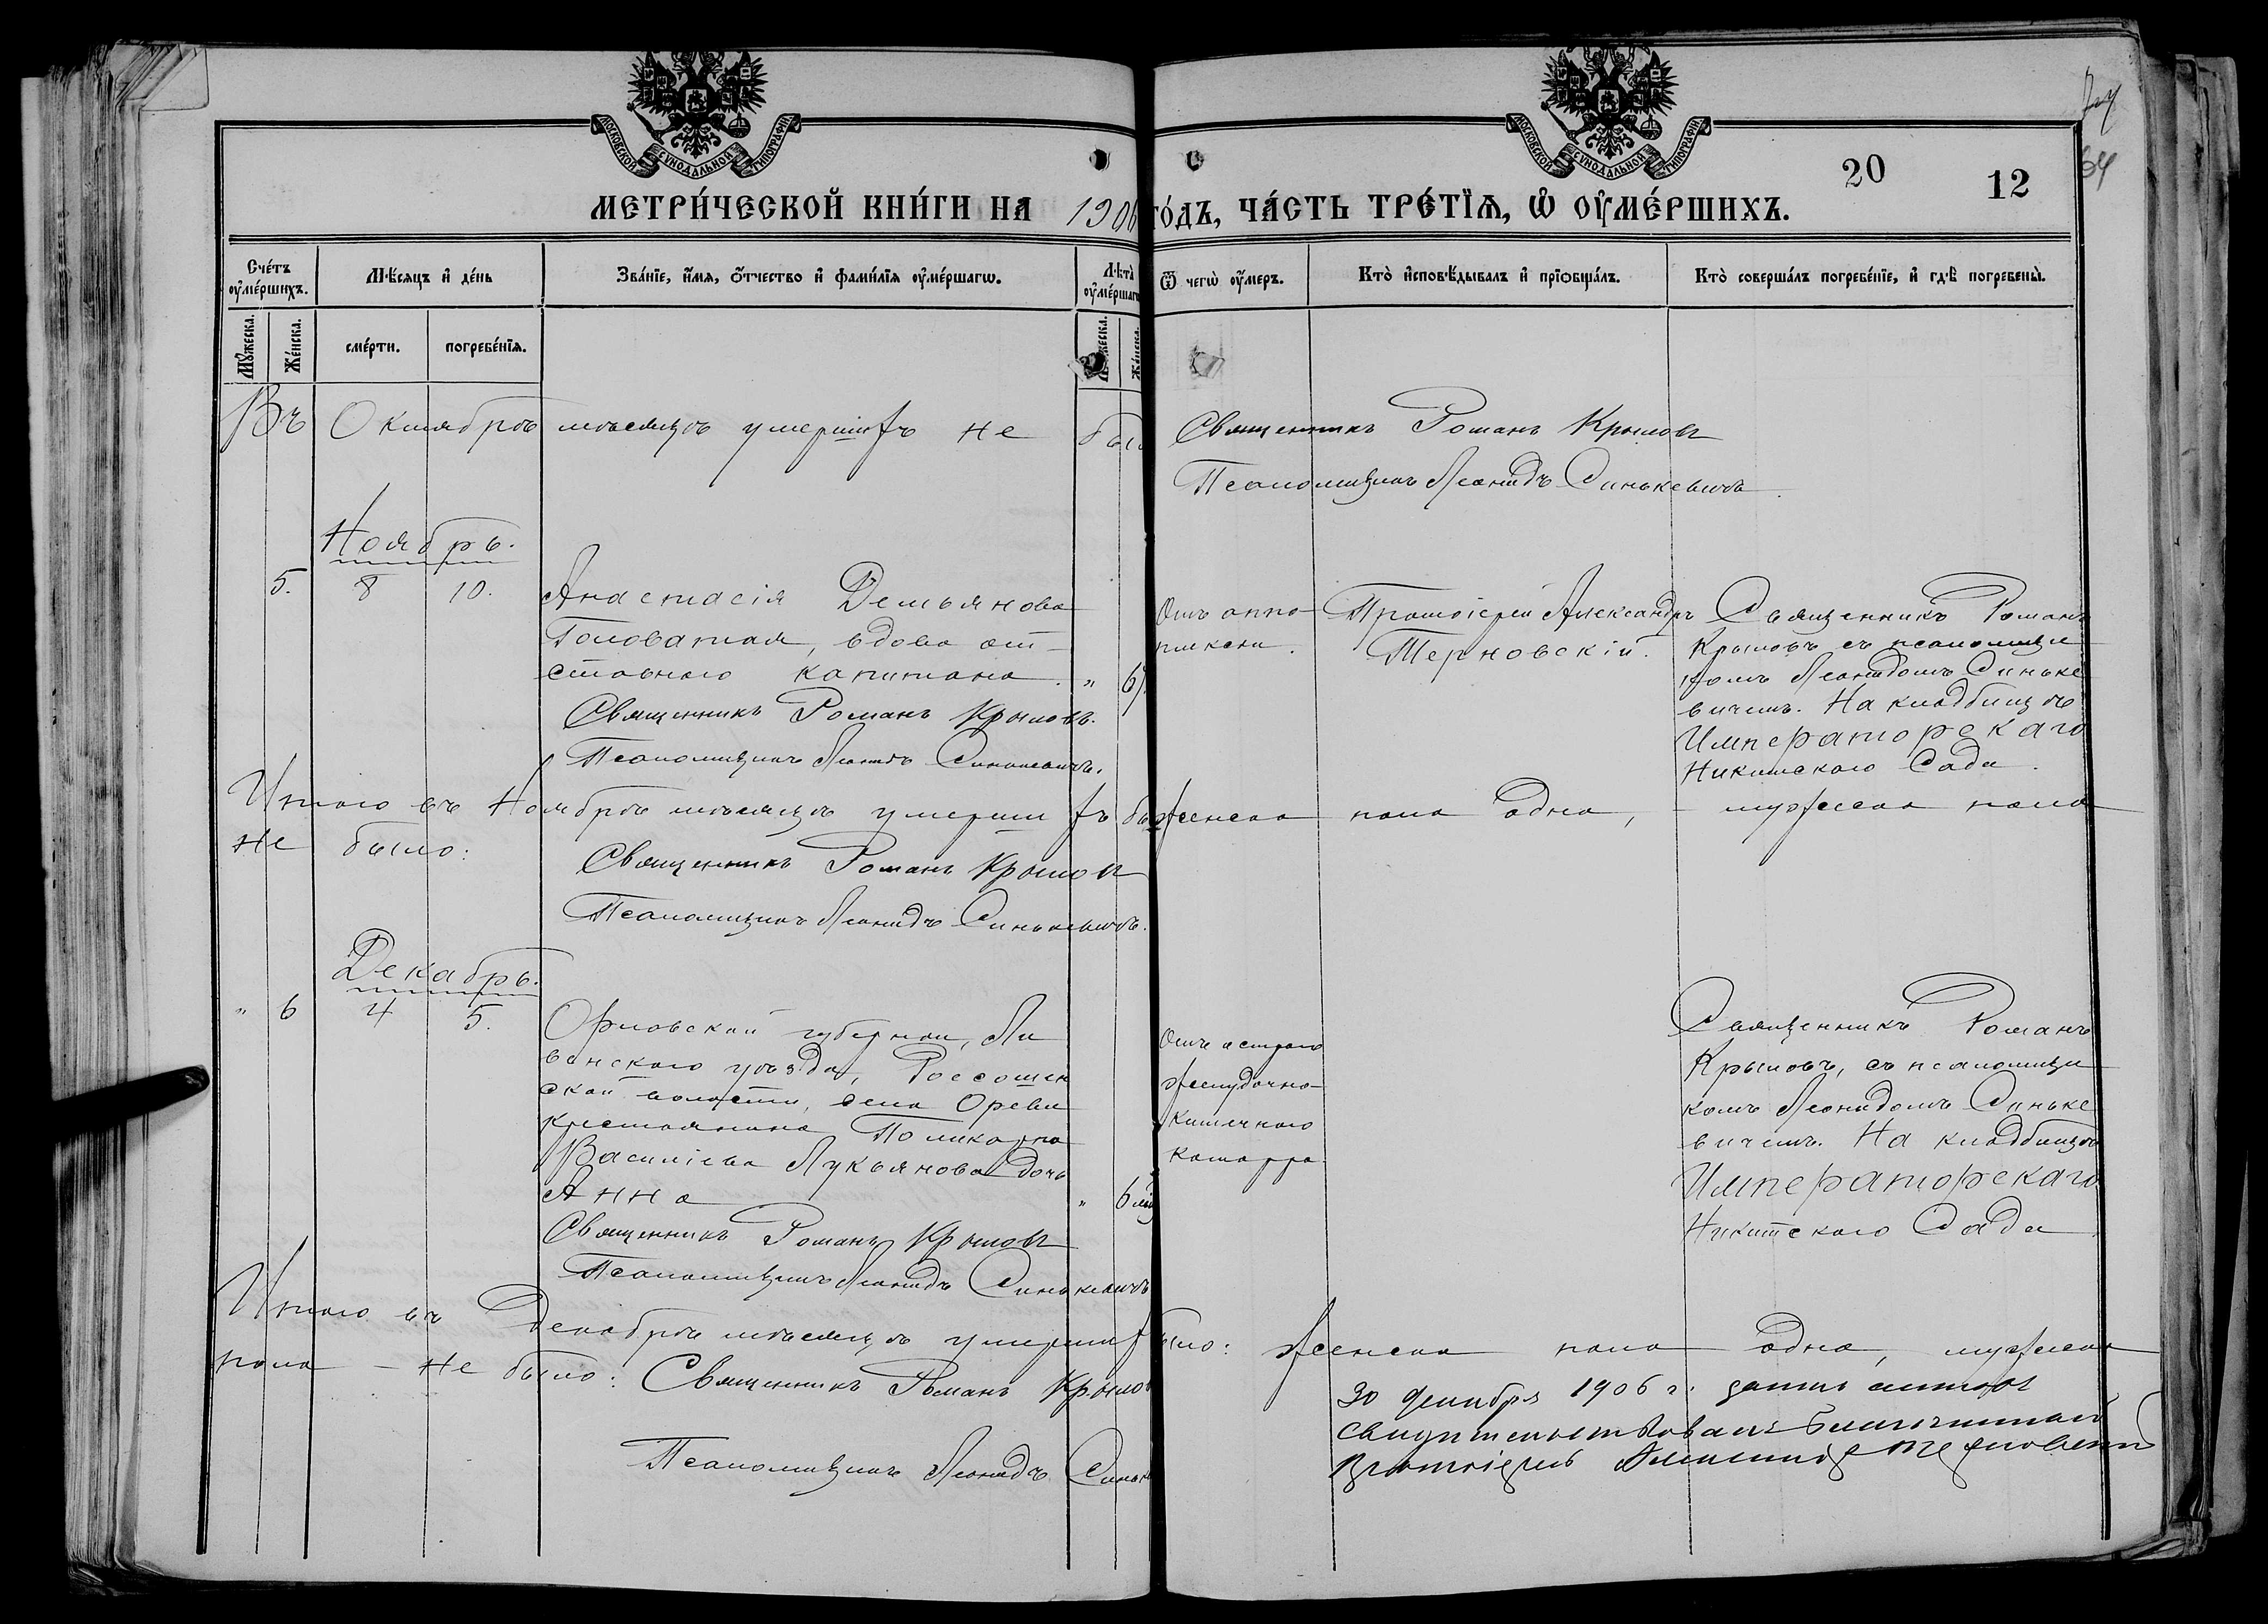 МОСКОВСКОЙ СѴНОДАЛЬНОЙ ТИПОГРАФІИ
МОСКОВСКОЙ СѴНОДАЛЬНОЙ ТИПОГРАФІИ
20
12
64
МЕТРИ́ЧЕСКОЙ КНИ́ГИ НА 1906 ГО́ДЪ, ЧА́СТЬ ТРЕ́ТЇѦ, Ѡ҆ ОУ҆МЕ́РШИХЪ.
Сче́тъ оу҆ме́ршихъ.
Мꙋ́жеска.
Же́нска.
Мѣ́сяцъ и҆ де́нь
сме́рти.
погребе́нїѧ.
Зва́нїе, и҆́мѧ, ѻ҆́тчество и҆ фами́лїѧ оу҆ме́ршагѡ.
Лѣ́та оу҆ме́ршагѡ
Же́нска.
Ѿ чегѡ̀ оу҆́меръ.
Кто̀ и҆сповѣ́дывалъ и҆ прїѡбща́лъ.
Кто̀ соверша́лъ погребе́нїе, и҆ гдѣ̀ погребены̀.
Въ Октябрѣ мѣсяцѣ умершихъ не был
Священникъ Романъ Крыловъ
Псаломщикъ Леонидъ Синькевичъ.
Ноябрь.
5. 8 10.
Анастасія Демьянова
Головатая, вдова от-
ставного капитана. " 67
Священникъ Романъ Крыловъ.
Псаломщикъ Леонидъ Синькевичъ.
Отъ апо-
плексіи.
Протоіерей Александръ
Терновскій.
Священникъ Романъ
Крыловъ съ псаломщи
комъ Леонидомъ Синьке
вичемъ. На кладбищѣ
Императорскаго
Никитскаго Сада.
Итого въ Ноябрѣ мѣсяцѣ умершихъ бы женска пола одна, – мужеска пола
не было:
Священникъ Романъ Крыловъ
Псаломщикъ Леонидъ Синькевичъ.
Декабрь.
" 6 4 5.
Орловской губерніи, Ли
венскаго уѣзда, Россошен
ской волости, села Орѣви
крестьянина Поликарпа
Василіева Лукьянова дочь
Анна " 6 мѣ
Священникъ Романъ Крыловъ
Псаломщикъ Леонидъ Синькевичъ
Отъ острого
желудочно-
кишечнаго
катарра.
Священникъ Романъ
Крыловъ, съ псаломщи
комъ Леонидомъ Синьке
вичемъ. На кладбищѣ
Императорскаго
Никитскаго Сада
Итого въ Декабрѣ мѣсяцѣ умерших было: женска пола одна, мужеска
пола – не было: Священникъ Романъ Крылов
Псаломщикъ Леонидъ Синьк
30 декабря 1906 г.
свидѣтельствовалъ Благочинный
Протоіерей Александръ Терновскій